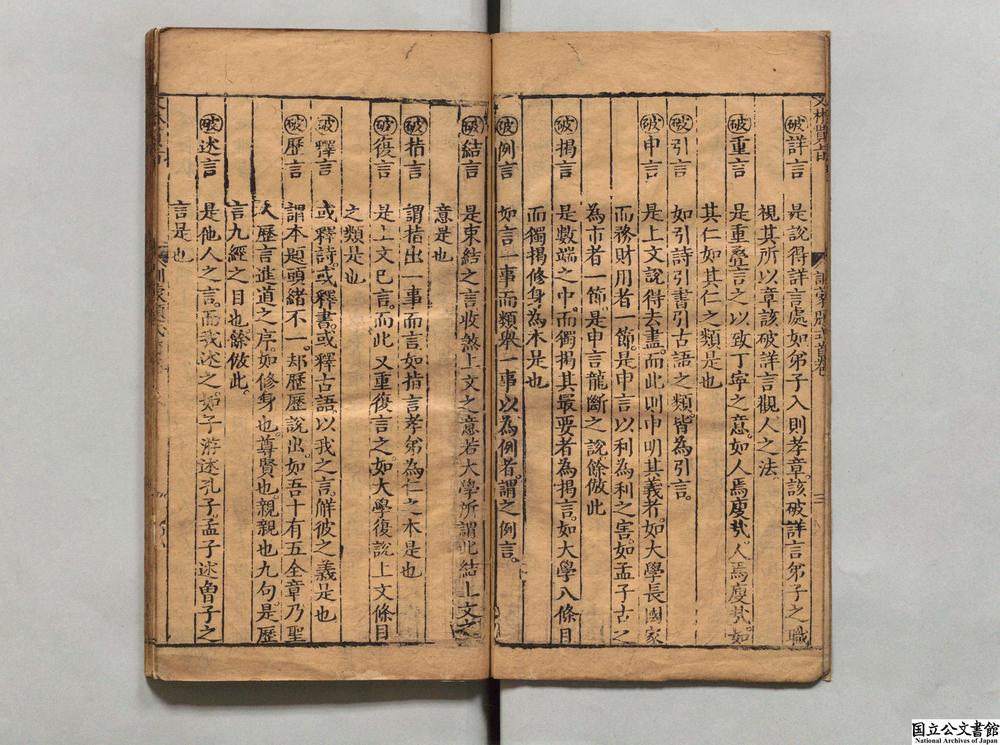 破詳言 是說得詳言處如弟子入則孝章該破詳言弟子之職
視其所以章該破詳言觀人之法
破重言 是重疊言之以致丁寧之意如人焉廋哉人焉廋哉如
其仁如其仁之類是也
破引言 如引詩引書引古語之類皆為引言
破申言 是上文說得去盡而此則申明其義者如大學長國家
而務財用者一節是申言以利為利之害如孟子古之
為市者一節是申言龍斷之說餘倣此
破揭言 是數端之中而獨揭其最要者為揭言如大學八條目
而獨揭修身為本是也
破例言 如言一事而類舉一事以為例者謂之例言
破結言 是束結之言收煞上文之意若大學所謂此結上文之
意是也
破指言 謂指出一事而言如指言孝弟為仁之本是也
破復言 是上文已言而此又重復言之如大學復說上文條目
之類是也
破釋言 或釋詩或釋書或釋古語以我之言解彼之義是也
破歷言 謂本題頭緒不一却歷歷說出如吾十有五全章乃聖
人歷言進道之序如修身也尊賢也親親也九句是歷
言九經之目也餘倣此
破述言 是他人之言而我述之如子游述孔子孟子述曾子之
言是也
国立公文書館
National Archives of Japan